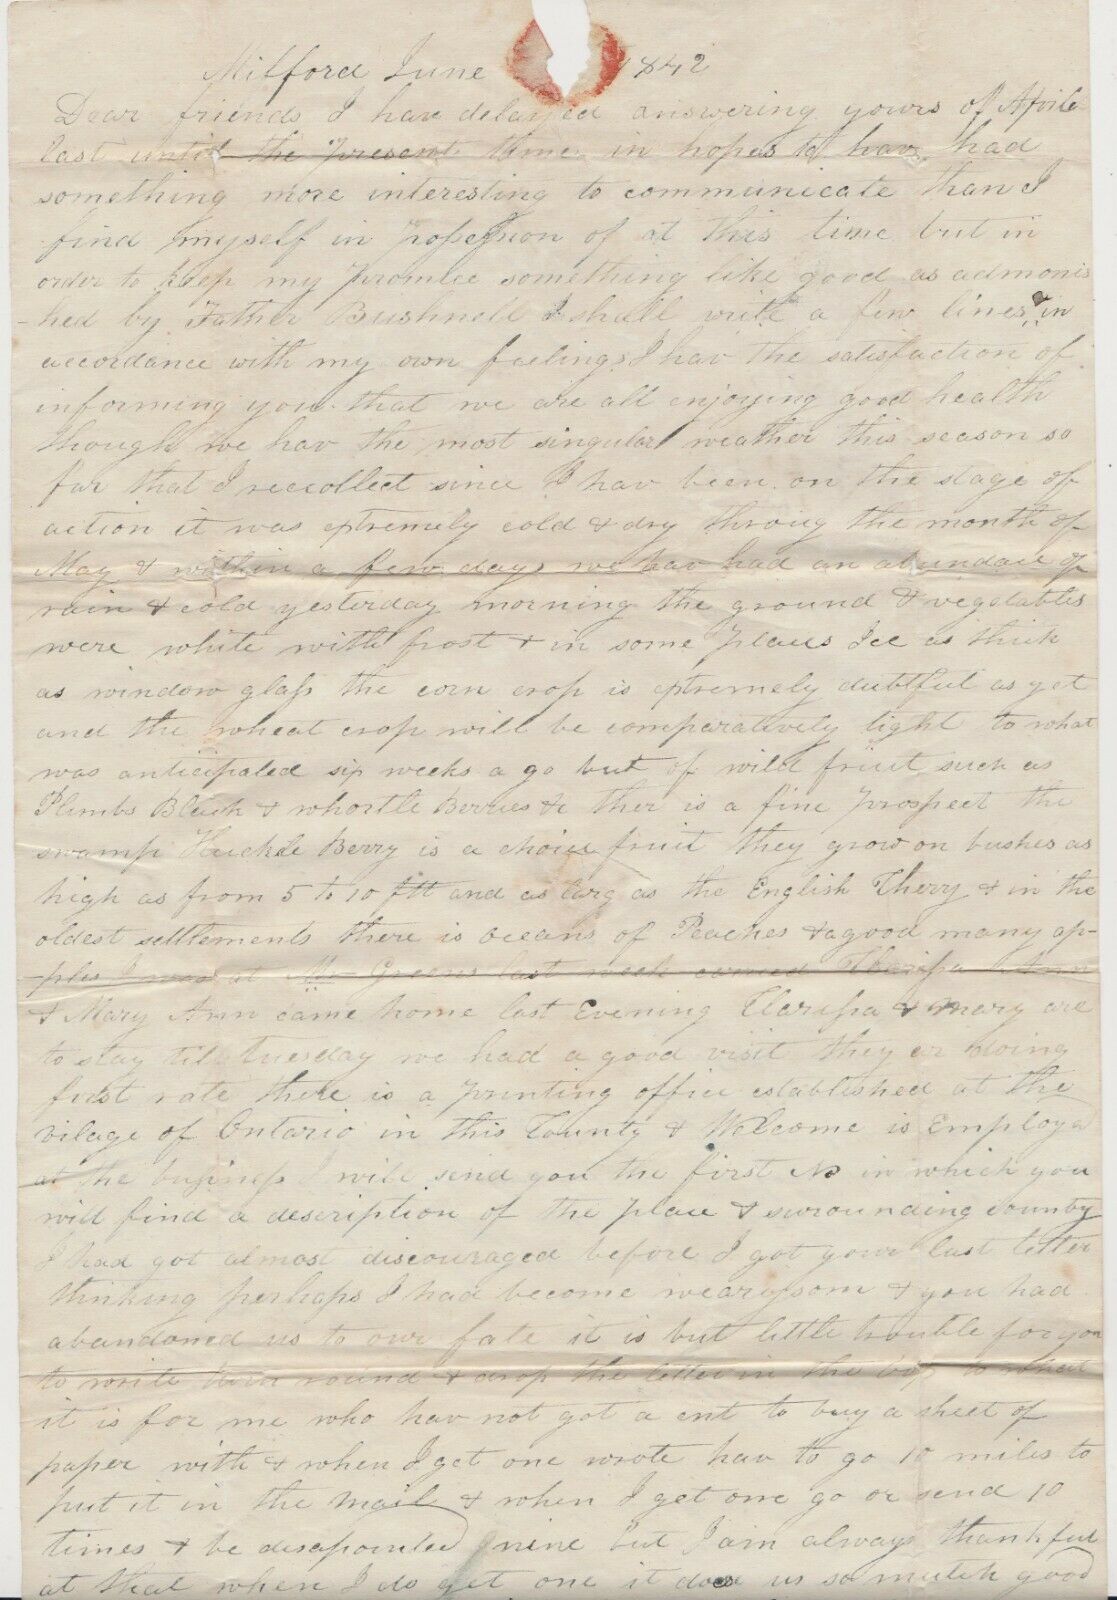 Milford June 1842
Dear friends I have delayed answering yours of Aprile
last until the present time in hopes to hav had
something more interesting to communicate than I
find myself in possession of at this time but in
order to keep my promise something like good as admonis
-hed by Father Bushnell I shall write a few lines in
accordance with my own feelings I hav the satisfaction of
informing you that we are all enjoying good health
though we hav the most singular weather this season so
far that I reccollect since I hav been on the stage of
action it was extremely cold & dry throug the month of
May & within a few days we hav had an abundace of
rain & cold yesterday morning the ground & vegetables
were white with frost & in some places Ice as thick
as window glass the corn crop is extremely dubtful as yet
and the wheat crop will be comparatively light to what
was anticipated six weeks a go but of wild fruit such as
Plumbs Black & whortle Berries &c ther is a fine prospect the
swamp Huckle Berry is a choice fruit they grow on bushes as
high as from 5 to 10 ftt and as larg as the English Cherry & in the
oldest settlements there is oceans of Peaches & a good many ap-
-ples I was at Mr Greens last week Clarissa Ann
& Mary Ann came home last Evening Clarissa & mary are
to stay til tuesday we had a good visit they er doing
first rate there is a printing office established at the
vilage of Ontario in this County & Welcome is Employd
at the business I will send you the first No in which you
will find a description of the place & surounding county
I had got almost discouraged before I got your last letter
thinking perhaps I had become wearysom & you had
abandoned us to our fate it is but little trouble for you
to write turn round & drop the letter in the box to what
it is for me who hav not got a cent to buy a sheet of
paper with & when I get one wrote hav to go 10 miles to
put it in the mail & when I get one go or send 10
times & be disapointed nine but I am always thankful
at that when I do get one it does us so mutch good